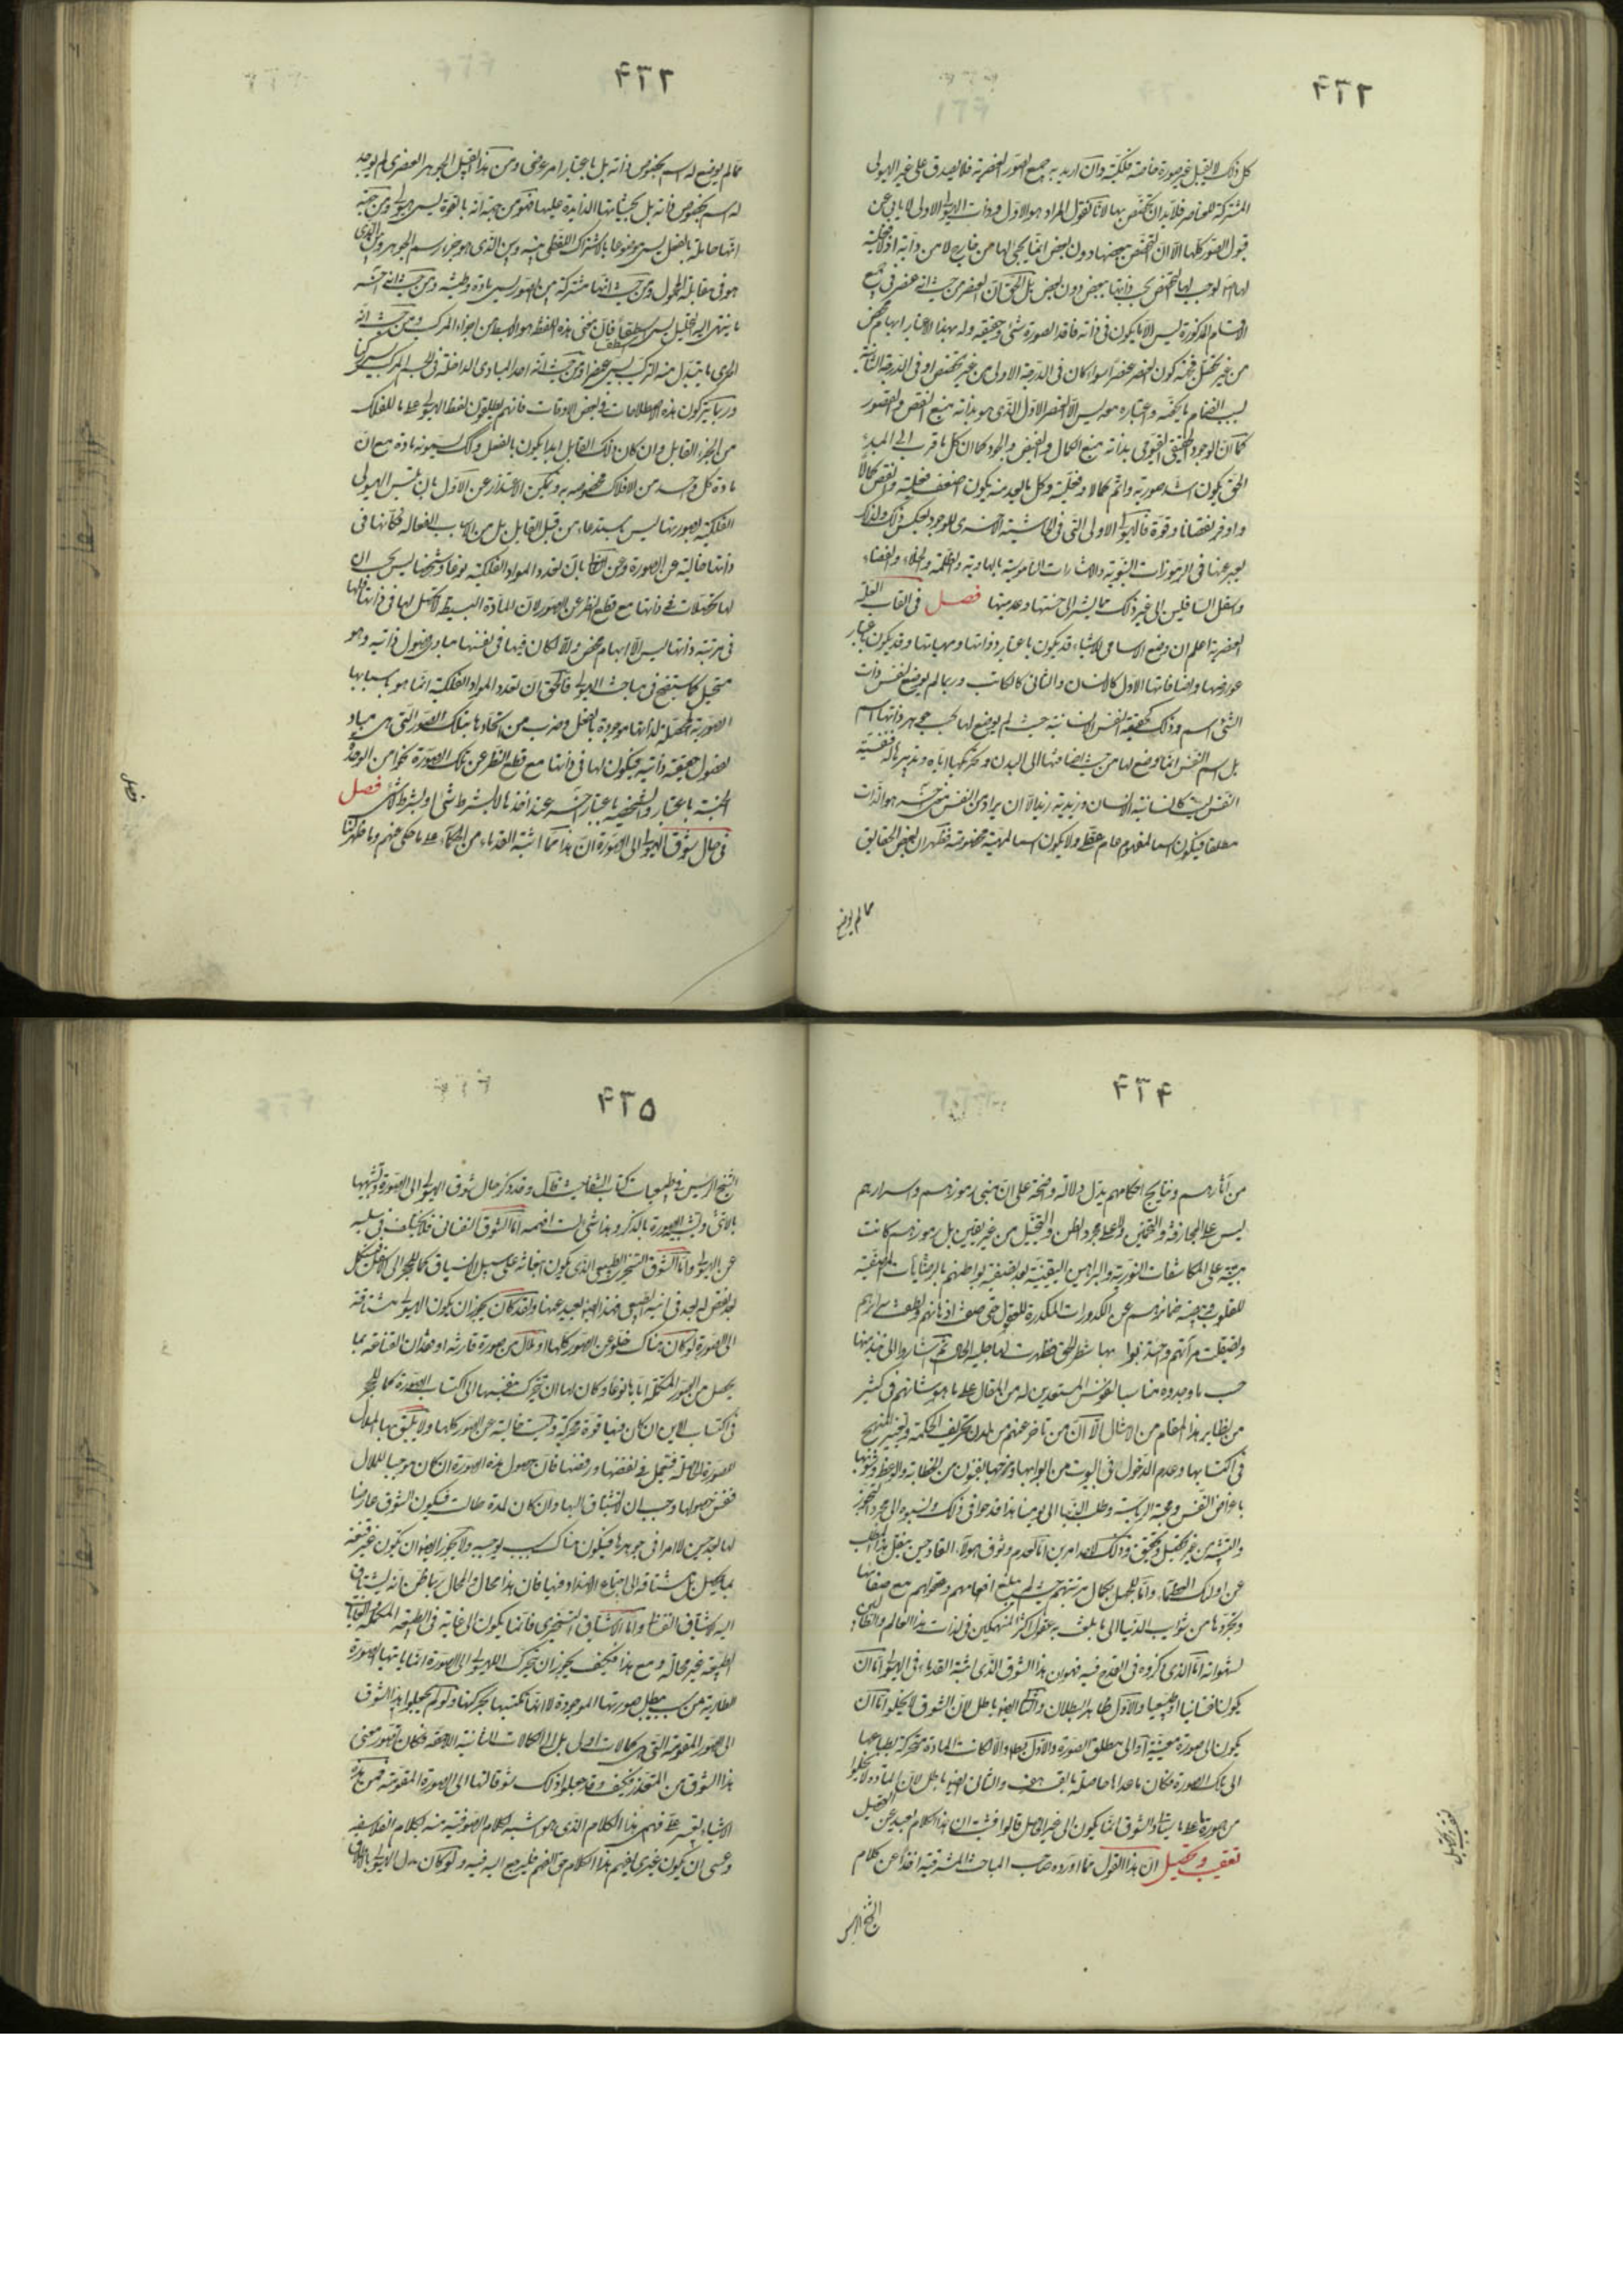 ۴۲۲
كل ذلك لا يقبل غير صورة خاصة فلكية وان اريد به جميع الصور العنصرية فلا يصدق على غير الهيولى
المشتركة للعناصر فلا بد ان يختص بها لانا نقول المراد هو الاول وذات الهيولى الاولى لا يابى عن
قبول الصور كلها الا ان التخصص ببعضها دون بعض انما يجيئ لها من خارج لا من ذاته اذ لا فعلية
لها اصلا يوجب لها التخصص بحسب ذاتها ببعض دون بعض بل الحق ان العنصر من حيث انه عنصر فى جميع
الاقسام المذكورة ليس الا ما يكون فى ذاته فاقد الصورة شئ وحقيقته وله بهذا الاعتبار ابهام محض
من غير تحصل فجهة كون العنصر عنصرا سواء كان فى الدرجة الاولى من غير تخصص او فى الدرجة الثانية
بسبب انضمام ما يكتنفه واعتباره معه ليس الا العنصر الاول الذى هو بذاته منبع النقص والقصور
كما ان الوجود الحقيقى القيومى بذاته منبع الكمال والفيض والجود كما ان كل ما قرب الى المبدء
الحق يكون اشد صورية واتم كمالا وفعلية وكل ما يبعد منه يكون اضعف فعلية وانقص كمالا
واوفر نقصانا وقوة فالهيولى الاولى التى فى الحاشية الاخرى للوجود بعكس ذلك ولذلك
يعبر عنها فى الرموزات النبوية والاشارات الناموسية بالهاوية والظلمة والخلاء والفضاء
واسفل السافلين الى غير ذلك مما يشير الى خستها وعدميتها فصل فى القاب العلة
العنصرية اعلم ان وضع الاسامى للاشياء قد يكون باعتبار ذواتها ومهياتها وقد يكون باعتبار
عوارضها واضافاتها الاول كالانسان والثانى كالكاتب وربما لم يوضع لنفس ذات
الشئ اسم وذلك كحقيقة النفس الانسانية حيث لم يوضع لها بحسب جوهر ذاتها اسم
بل اسم النفس انما وضع لها من حيث اضافتها الى البدن وتحريكها اياه وتدبيرها له فنفسية
النفس ليست كانسانية الانسان وزيدية زيد الا ان يراد من النفس معنى آخر هو الذات
مطلقا فيكون اسما لمفهوم عام عقلى ولا يكون اسما لمهية مخصوصة فظهر ان بعض الحقايق
مما لم يوضع
۴۲۳
مما لم يوضع له اسم بخصوص ذاته بل باعتبار امر عرضى ومن هذا القبيل الجوهر العنصرى لم يوجد
له اسم بخصوص ذاته بل بحيثياتها الزايدة عليها فهو من جهة انه بالقوة يسمى هيولى ومن جهة
انها حاملة بالفعل يسمى موضوعا بالاشتراك اللفظى بينه وبين الذى هو جزء رسم الجوهر وبين الذى
هو فى مقابلة المحمول ومن حيث انها مشتركة بين الصور يسمى مادة وطينة ومن حيث انه آخر
ما ينتهى اليه التحليل يسمى اسطقسا فان معنى هذه اللفظة هو الابسط من اجزاء المركب ومن حيث انه
اول ما يبتدى منه التركيب يسمى عنصرا ومن حيث انه احد المبادى الداخلة فى الجسم المركب يسمى ركنا
وربما يتركون هذه الاصطلاحات فى بعض الاوقات فانهم يطلقون لفظ الهيولى على ما للفلك
من الجزء القابل وان كان ذلك القابل ابدا يكون بالفعل وكذلك يسمونه مادة مع ان
مادة كل واحد من الافلاك مخصوصة به ويمكن الاعتذار عن الاول بان تلبس الهيولى
الفلكية بصورتها ليس باستدعاء من قبل القابل بل من الاسباب الفعالة فكانها فى
ذاتها خالية عن الصورة وعن الثانى بان تعدد المواد الفلكية نوعا وشخصا ليس بحسب ان
لها تحصلات فى ذاتها مع قطع النظر عن الصور لان المادة البسيطة لا تحصل لها فى ذاتها فلها
فى مرتبة ذاتها ليس الا ابهام محض والا لكان فيها فى نفسها مبادى فصول ذاتية وهو
مستحيل كما ستضح فى مباحث الهيولى فالحق ان تعدد المواد الفلكية انما هو باسبابها
الصورية المحصلة لذاتها موجودة بالفعل وضرب من اتحادها بتلك الصور التى هى مباد
لفصول حقيقية ذاتية فيكون لها فى ذاتها مع قطع النظر عن تلك الصورة نحوا من الوحدة
الجنسية باعتبار والشخصية باعتبار آخر عند اخذها لا بشرط شئ او بشرط لا شئ فصل
فى حال شوق الهيولى الى الصورة ان هذا مما اثبته القدماء من الحكماء على ما حكى عنهم وما ظهر لنا
فصل
۴۲۴
من آثارهم ونتايج افكارهم يدل دلالة واضحة على ان مبنى رموزهم واسرارهم
ليس على المجازفة والتخمين ولا على مجرد الظن والتخيل من غير يقين بل رموزهم كانت
مبنية على المكاشفات النورية والبراهين اليقينية بعد تصفية بواطنهم بالرياضات المصفية
للقلوب وتنقية ضمائرهم عن الكدورات المكدرة للعقول حتى صفت اذهانهم ولطفت اسرارهم
وتصيقلت مرآتهم واحتذوا بها شطر الحق فظهرت لها جلية الحال ثم اشاروا الى نبذ منها
حسب ما وجدوه مناسبا لنفوس المستعدين له من المقال على ما هو شانهم فى كثير
من نظاير هذا المقام من الامثال الا ان من تاخر عنهم من لدن تحريف الحكمة وتغيير المنهج
فى اكتسابها وعدم الدخول فى البيوت من ابوابها ومزجها بفنون من الخطابة والوعظ وشوبها
باغراض النفس ومحبة الرياسة وطلب الدنيا الى يومنا هذا قدحوا فى ذلك ونسبوه الى مجرد التجوز
والتشبيه من غير تحصيل وتحقيق وذلك لاحد امرين اما لعدم وثوق هؤلاء النقاد حين ينقل هذا المطلب
عن اولئك العظماء واما للجهل بكمال مرتبتهم حيث لم يبلغ افهامهم وعقولهم مع صفائها
وتجردها من شوايب الدنيا الى ما بلغت به عقول اكثر المنهمكين فى لذات هذا العالم والطالبين
لشهواته اما الذى ذكروه فى القدح فيه فهو ان هذا الشوق الذى اثبته القدماء فى الهيولى اما ان
يكون نفسانيا او طبيعيا والاول ظاهر البطلان والثانى ايضا باطل لان الشوق لا يخلوا اما ان
يكون الى صورة معينة او الى مطلق الصورة والاول باطل والا لكانت المادة متحركة بطباعها
الى تلك الصورة فكان ما عداها حاصلة بالقسر هف والثانى ايضا باطل لان المادة لا تخلوا
من صورة على ما سيتاتى والشوق انما يكون الى غير الحاصل قالوا فثبت ان هذا الكلام بعيد عن التحصيل
تعقيب وتحصيل ان هذا القول مما اورده صاحب المباحث المشرقية اخذا عن كلام
تعقيب وتحصيل
الشيخ الرئيس
۴۲۵
الشيخ الرئيس فى طبيعيات كتاب الشفا حيث قال وقد ذكر حال شوق الهيولى الى الصورة وتشبيهها
بالانثى وتشبيه الصورة بالذكر وهذا شئ لست افهمه اما الشوق النفسانى فلا يختلف فى سلبه
عن الهيولى واما الشوق التسخيرى الطبيعى الذى يكون انبعاثه على سبيل الانسياق كما للحجر الى الاسفل ليستكمل
بعد نقص له بعد فى اينه الطبيعى فهذا ايضا بعيد عنها ولقد كان يجوز ان يكون الهيولى مشتاقة
الى الصورة لو كان هناك خلو عن الصور كلها او ملال من صورة قارنته او فقدان القناعة بما
يحصل من الصور المكملة اياها نوعا وكان لها ان تتحرك بنفسها الى اكتساب الصورة كما للحجر
فى اكتساب الاين ان كان فيها قوة محركة وليست خالية عن الصور كلها ولا يليق بها الملال
للصورة الحاصلة فتعمل فى نقضها ورفضها فان حصول هذه الصورة ان كان موجبا للملال
لنفس حصولها وجب ان لا يشتاق اليها وان كان لمدة طالت فيكون الشوق عارضا
لها بعد حين لا امرا فى جوهرها فيكون هناك سبب يوجبه ولا يجوز ايضا ان تكون غير قنعة
بما يحصل بل مشتاقة الى اجتماع الاضداد فيها فان هذا محال والمحال ربما ظن انه يشتاق
اليه الاشتياق النفسانى واما الاشتياق التسخيرى فانما يكون الى غاية فى الطبيعة المكملة والغايات
الطبيعية غير محالة ومع هذا فكيف يجوز ان يتحرك الهيولى الى الصورة انما ياتيها الصورة
الطارية من سبب يبطل صورتها الموجودة لا انها تكتسبها بحركتها ولو لم يجعلوا هذا الشوق
الى الصور المقومة التى هى كمالات اولى بل الى الكمالات الثانية اللاحقة لكان تصور معنى
هذا الشوق من المتعذر فكيف وقد جعلوا ذلك شوقا لها الى الصورة المقومة فمن هذه
الاشياء يعسر على فهم هذا الكلام الذى هو اشبه بكلام الصوفية منه بكلام الفلاسفة
وعسى ان يكون غيرى يفهم هذا الكلام حق الفهم فليرجع اليه فيه ولو كان بدل الهيولى بالاطلاق